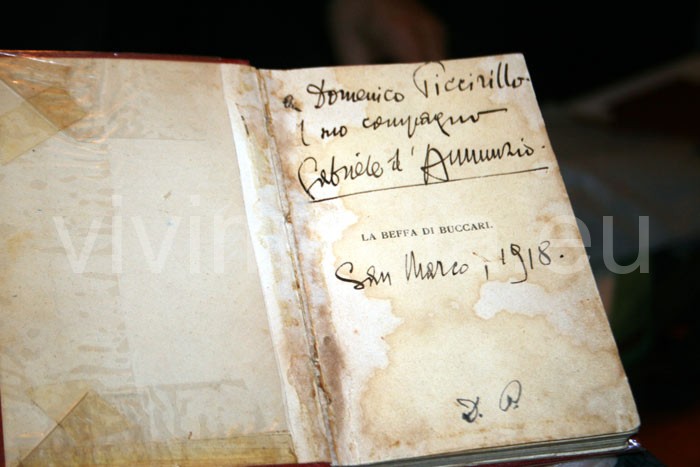 a Domenico Piccirillo.
l suo compagno
Gabriele d'Annunzio.
LA BEFFA DI BUCCARI.
San Marco, 1918.
D. P.